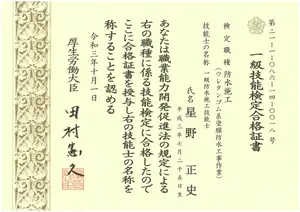 第二一-一-〇八六-一四-〇〇一八号
一級技能検定合格証書
検定職種 防水施工
(ウレタンゴム系塗膜防水工事作業)
技能士の名称 一級防水施工技能士
氏名 星野 正史
平成三年七月二十五日生
あなたは職業能力開発促進法の規定による
右の職種に係る技能検定に合格したので
ここに合格証書を授与し右の技能士の名称を
称することを認める
令和三年十月一日
厚生労働大臣 田村憲久